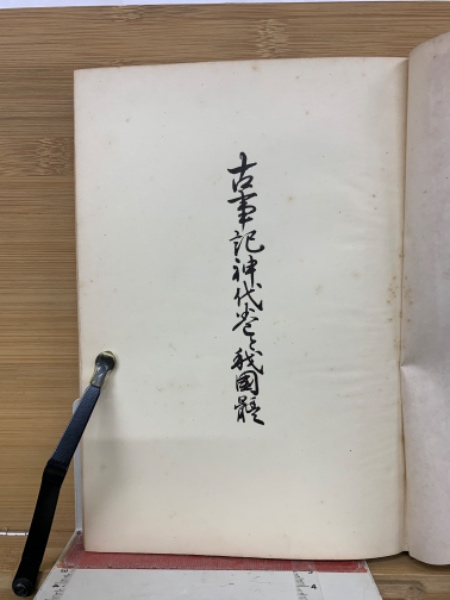 古事記神代巻と我國體